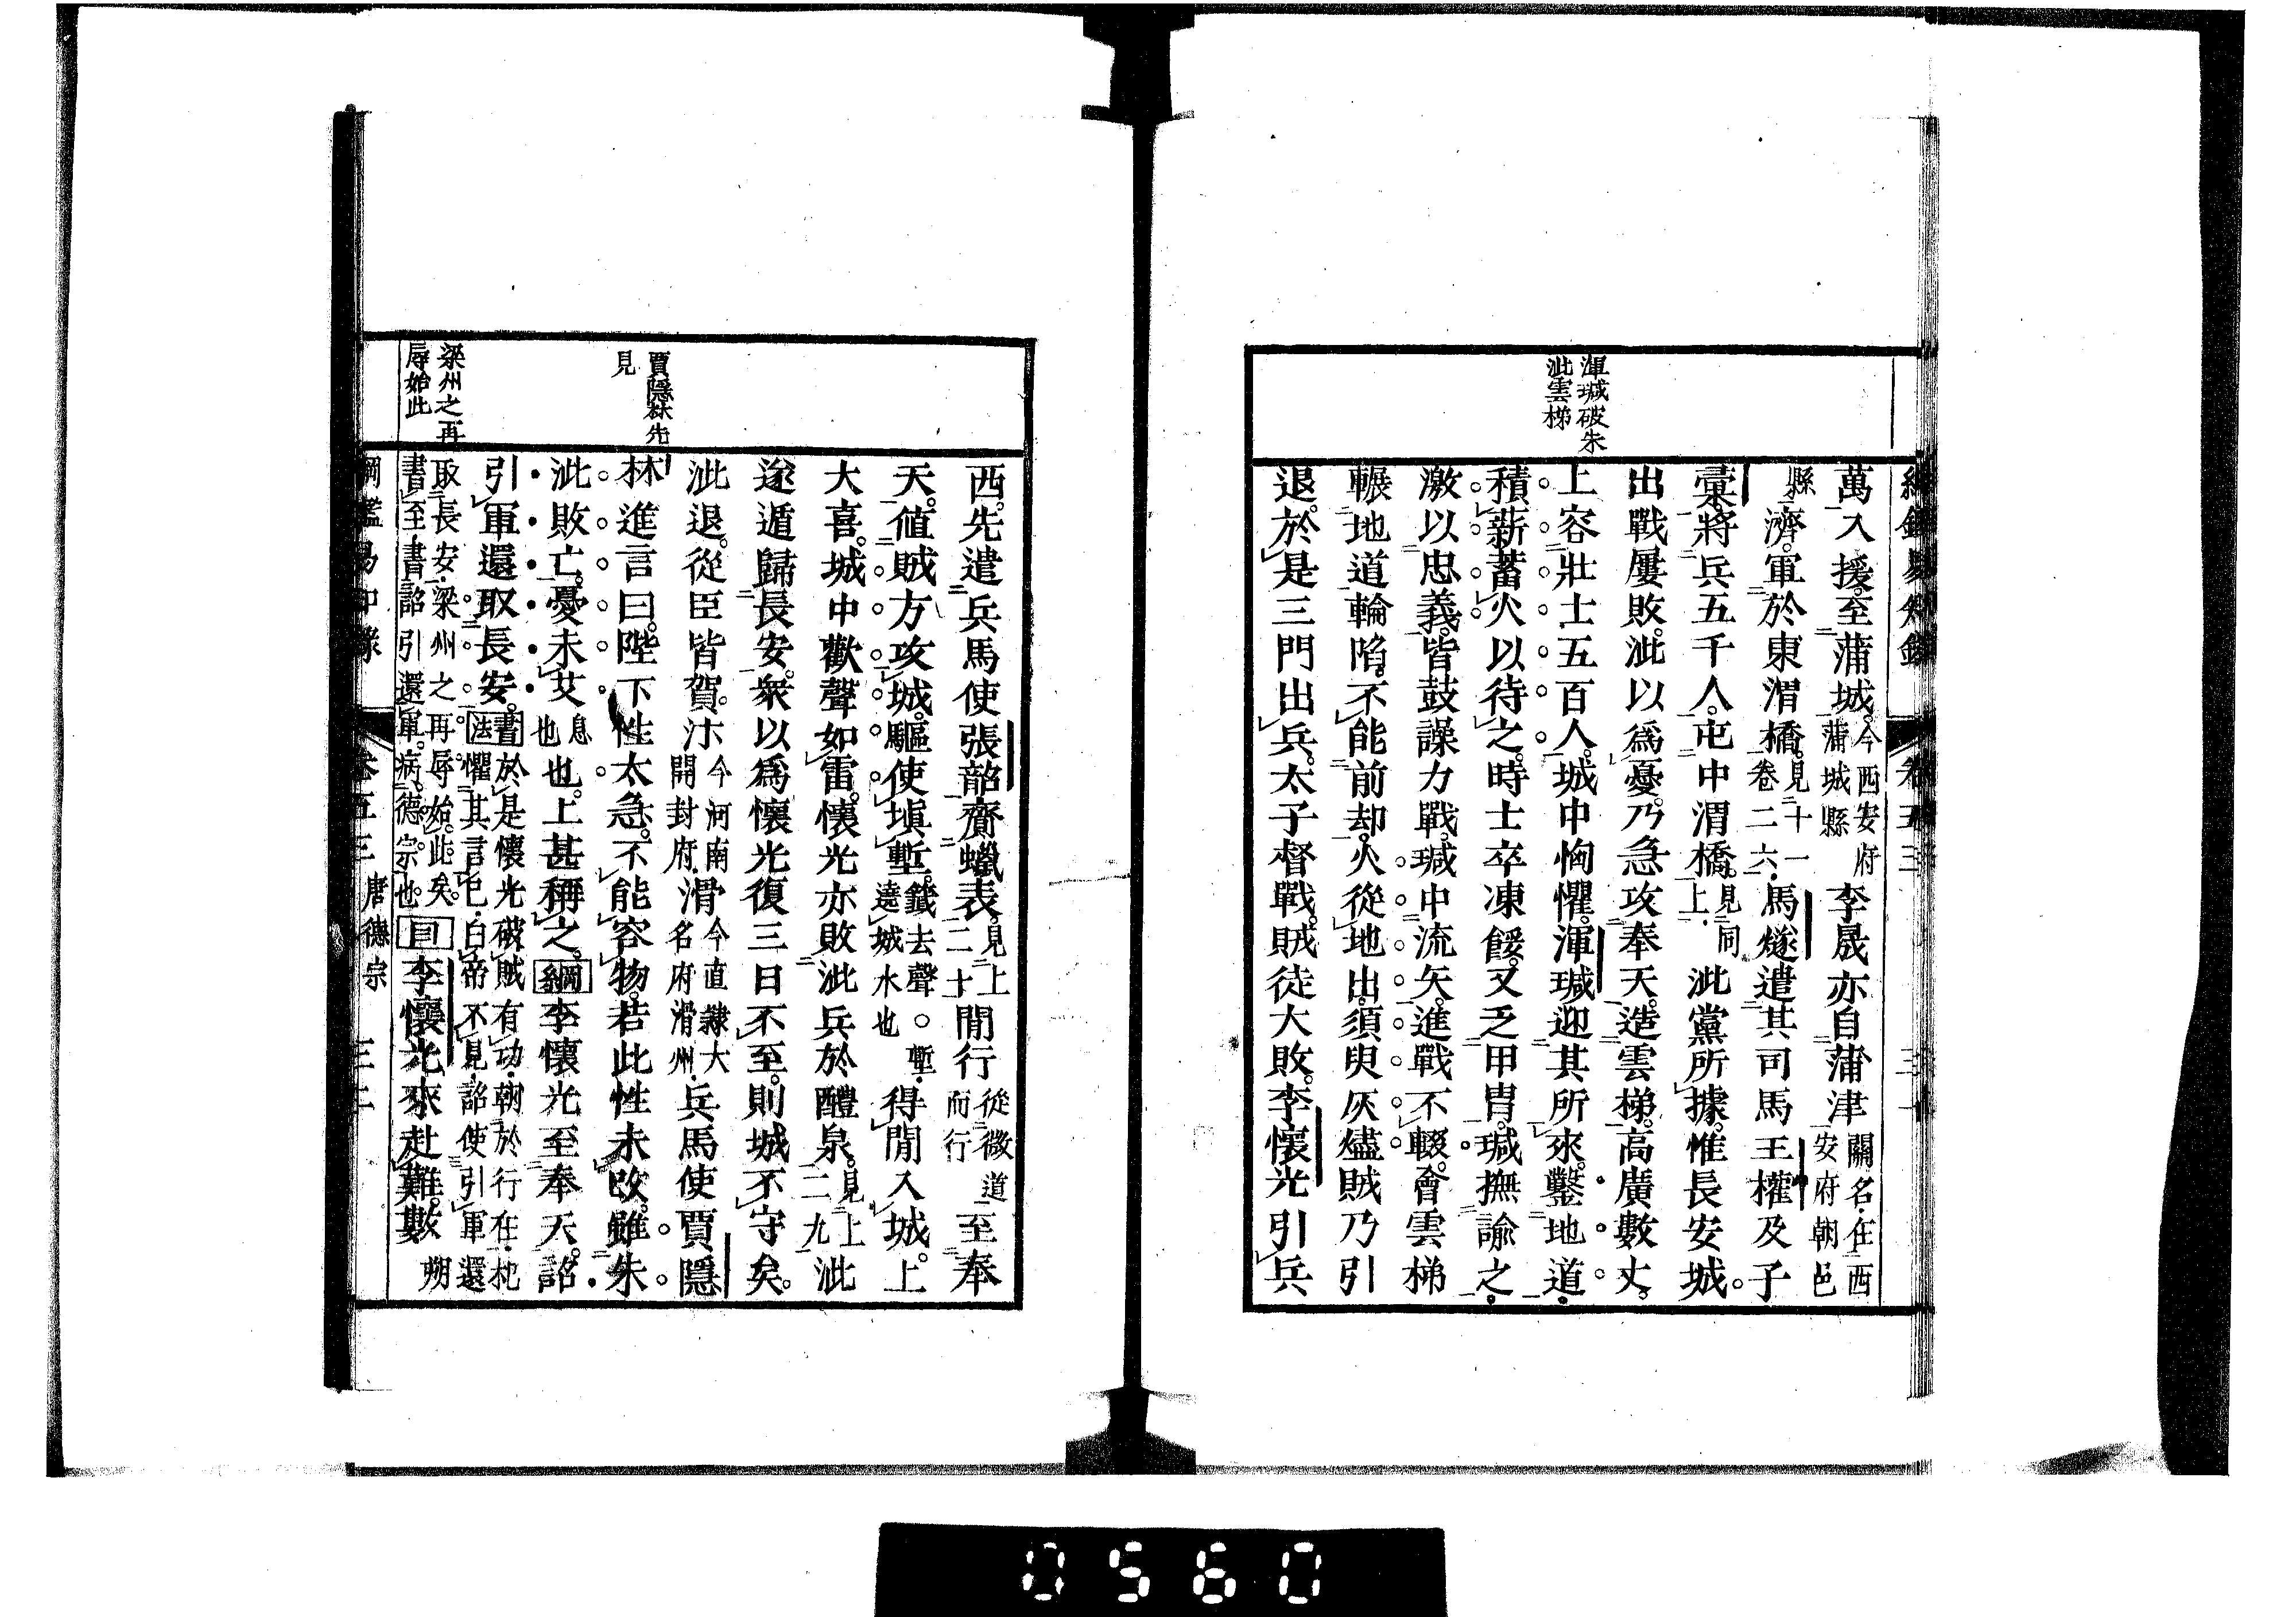 渾瑊破朱
泚雲梯
萬入援。至蒲城。今西安府蒲城縣李晟亦自蒲津關名在西安府朝邑
縣濟。軍於東渭橋。見十一卷二六馬燧遣其司馬王權及子
彚。將兵五千人。屯中渭橋。見同上泚黨所據。惟長安城。
出戰屢敗。泚以爲憂。乃急攻奉天。造雲梯。高廣數丈。
上容壯士五百人。城中恟懼。渾瑊迎其所來。鑿地道。
積薪蓄火以待之。時士卒凍餒。又乏甲冑。瑊撫諭之。
激以忠義。皆鼓譟力戰。瑊中流矢。進戰不輟。會雲梯
輾地道。輪陷。不能前却。火從地出。須臾灰燼。賊乃引
退。於是三門出兵。太子督戰。賊徒大敗。李懷光引兵
賈隱林先
見
梁州之再
辱始此
西。先遣兵馬使張韶齎蠟表。見上二十間行從微道而行至奉
天。値賊方攻城。驅使塡塹。鐵去聲○塹遶城水也得間入城。上
大喜。城中歡聲如雷。懷光亦敗泚兵於醴泉。見上二九泚
遂遁歸長安。衆以爲懷光復三日不至。則城不守矣。
泚退。從臣皆賀。汴今河南開封府滑今直隸大名府滑州兵馬使賈隱
林進言曰。陛下性太急。不能容物。若此性未改。雖朱
泚敗亡。憂未艾息也也。上甚稱之。綱李懷光至奉天。詔
引軍還取長安。書法於是懷光破賊有功。朝於行在。杞懼其言己。白帝不見。詔使引軍還
取長安。梁州之再辱。始此矣。書至。書詔引還軍。病德宗也。目李懷光來赴難。數朔
綱鑑易知錄 卷五三 唐德宗 三二